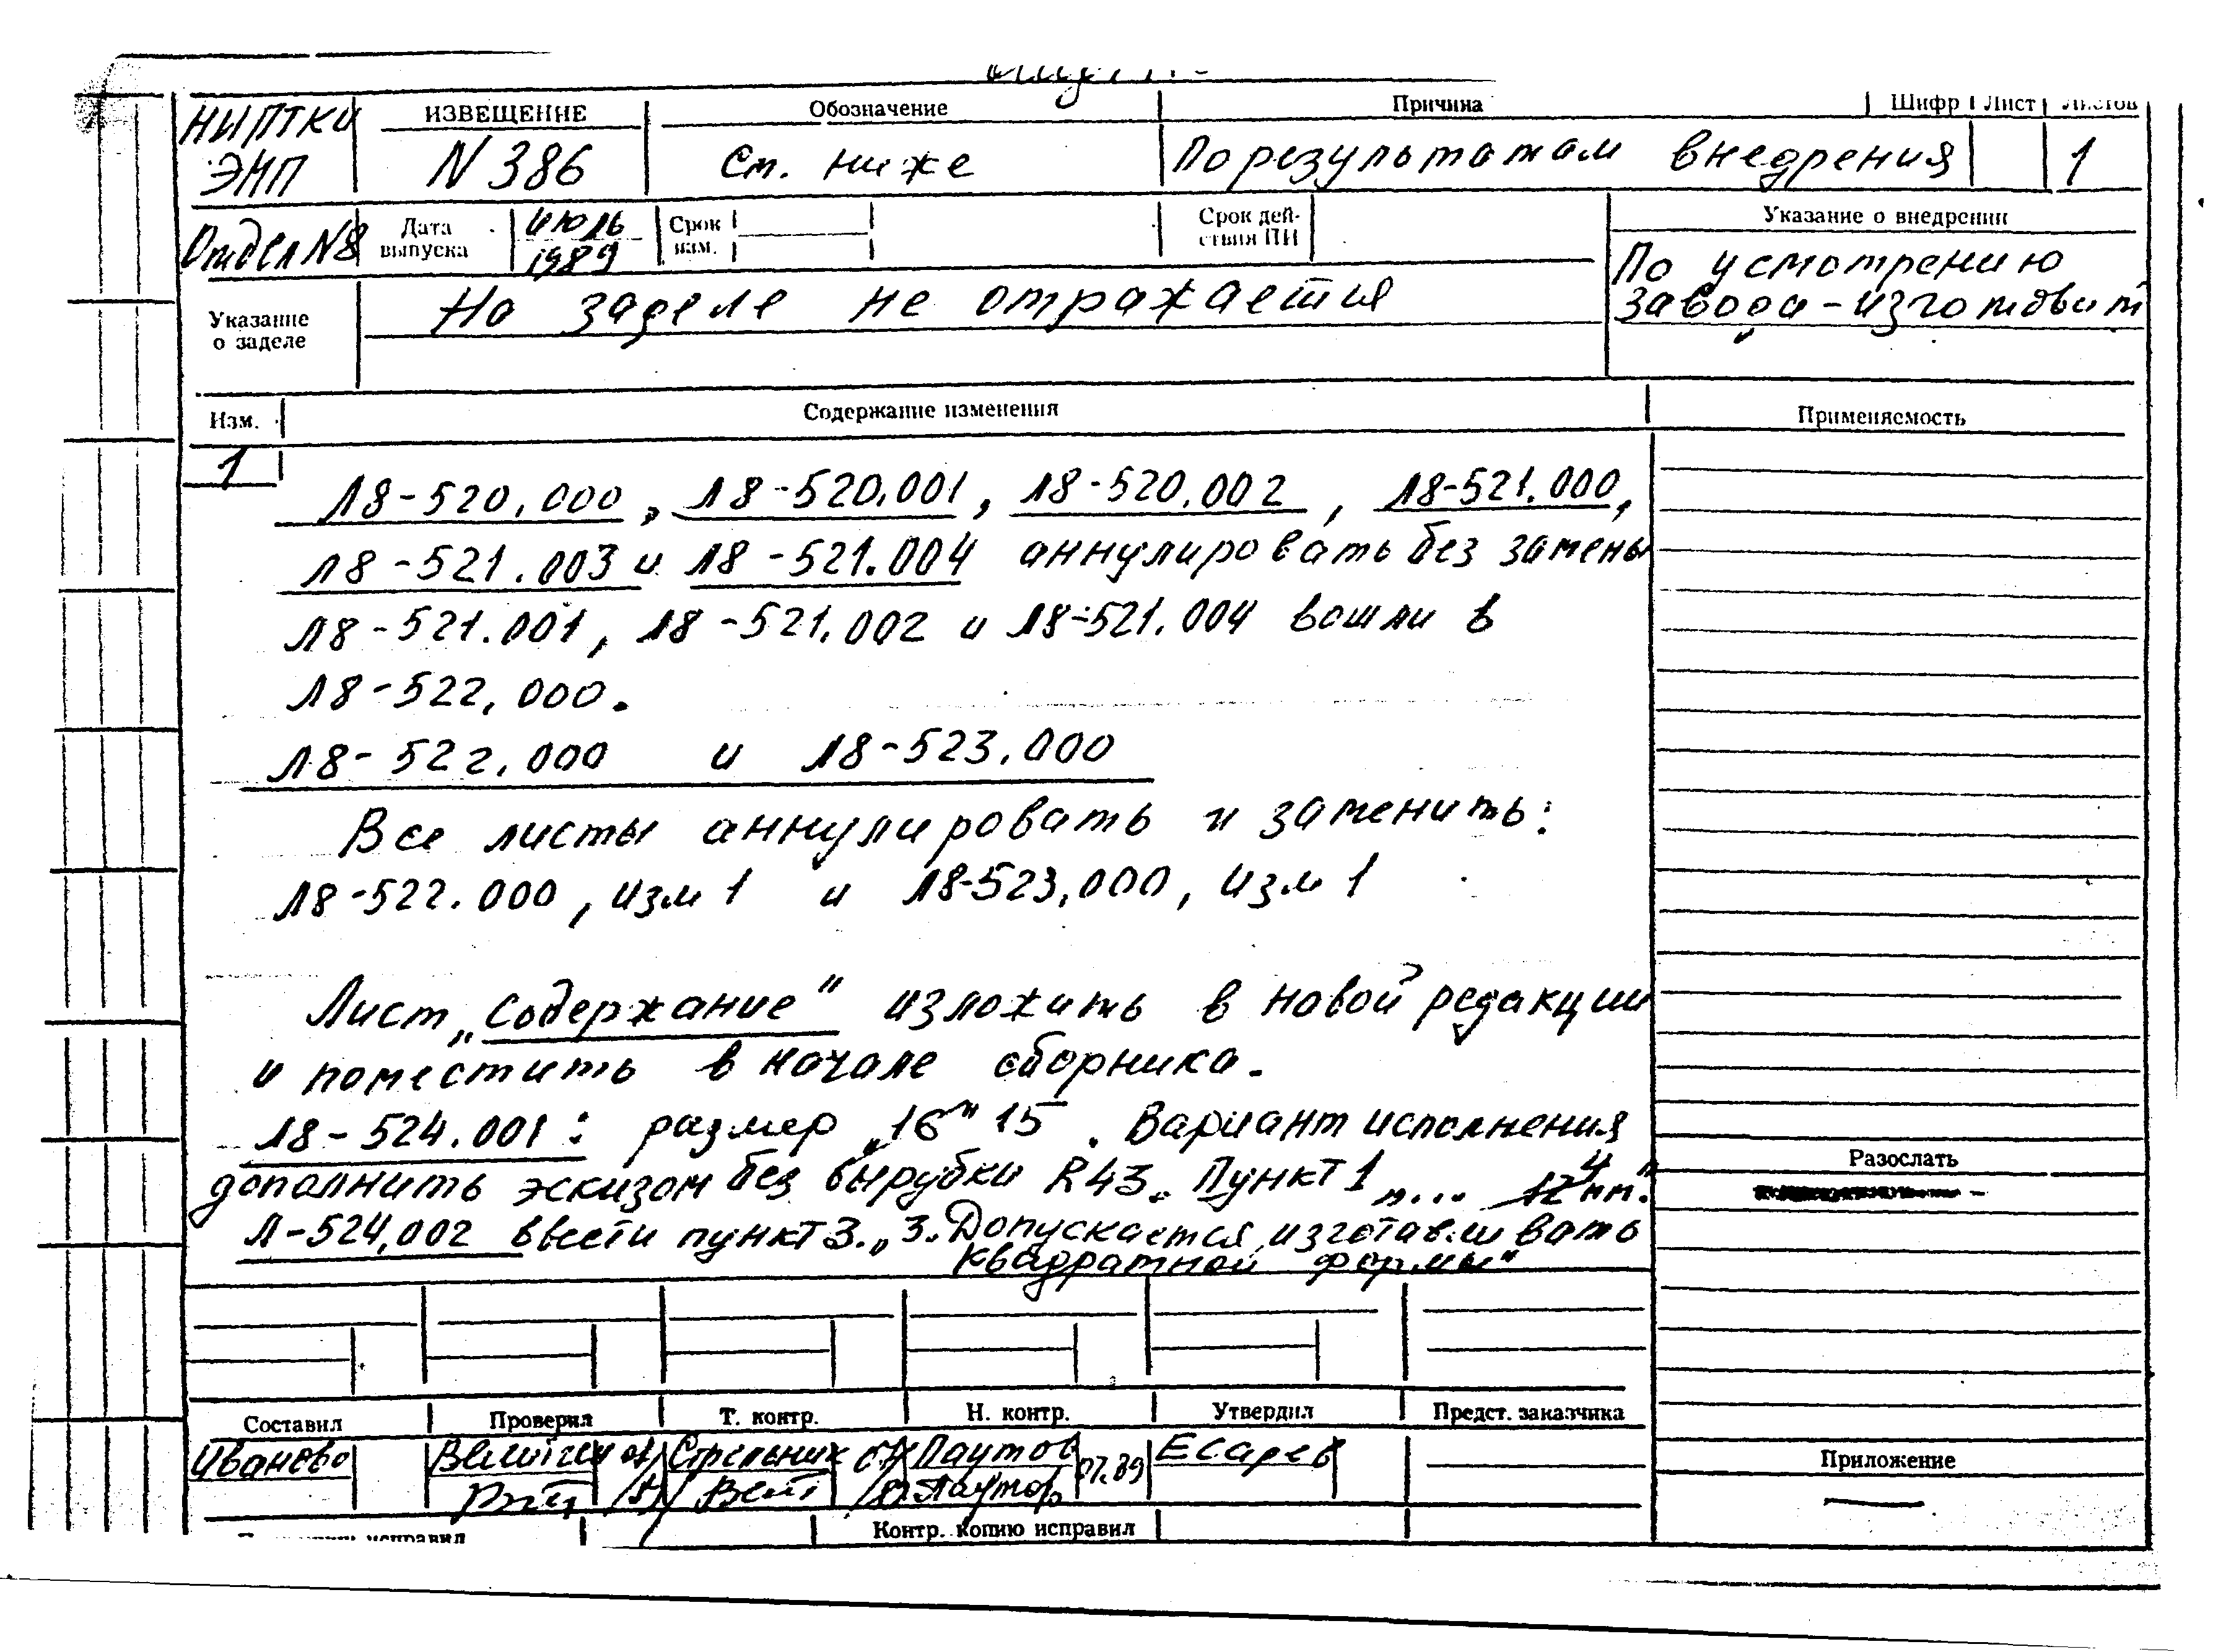 НИПТКИ ИЗВЕЩЕНИЕ Обозначение Причина Шифр Лист Листов
ЭМП N 386 См. ниже По результатам внедрения 1
Отдел N8 Дата выпуска июль 1989 Срок изм. Срок действия ПИ Указание о внедрении
По усмотрению
завода-изготовит
Указание о заделе На заделе не отражается
Изм. Содержание изменения Применяемость
1
Л8-520.000, Л8-520.001, Л8-520.002, Л8-521.000,
Л8-521.003 и Л8-521.004 аннулировать без замены
Л8-521.001, Л8-521.002 и Л8-521.004 вошли в
Л8-522.000.
Л8-522.000 и Л8-523.000
Все листы аннулировать и заменить:
Л8-522.000, изм 1 и Л8-523.000, изм 1
Лист „Содержание" изложить в новой редакции
и поместить в начале сборника.
Л8-524.001: размер „16" 15. Вариант исполнения
дополнить эскизом без вырубки R43. Пункт 1 „... 12 4 мм."
Л-524.002 ввести пункт 3. „3. Допускается изготавливать
квадратной формы"
Разослать
Составил Проверил Т. контр. Н. контр. Утвердил Предст. заказчика
Иванова Стрельник Паутов 07.89 Есарев
Приложение
исправил Контр. копию исправил